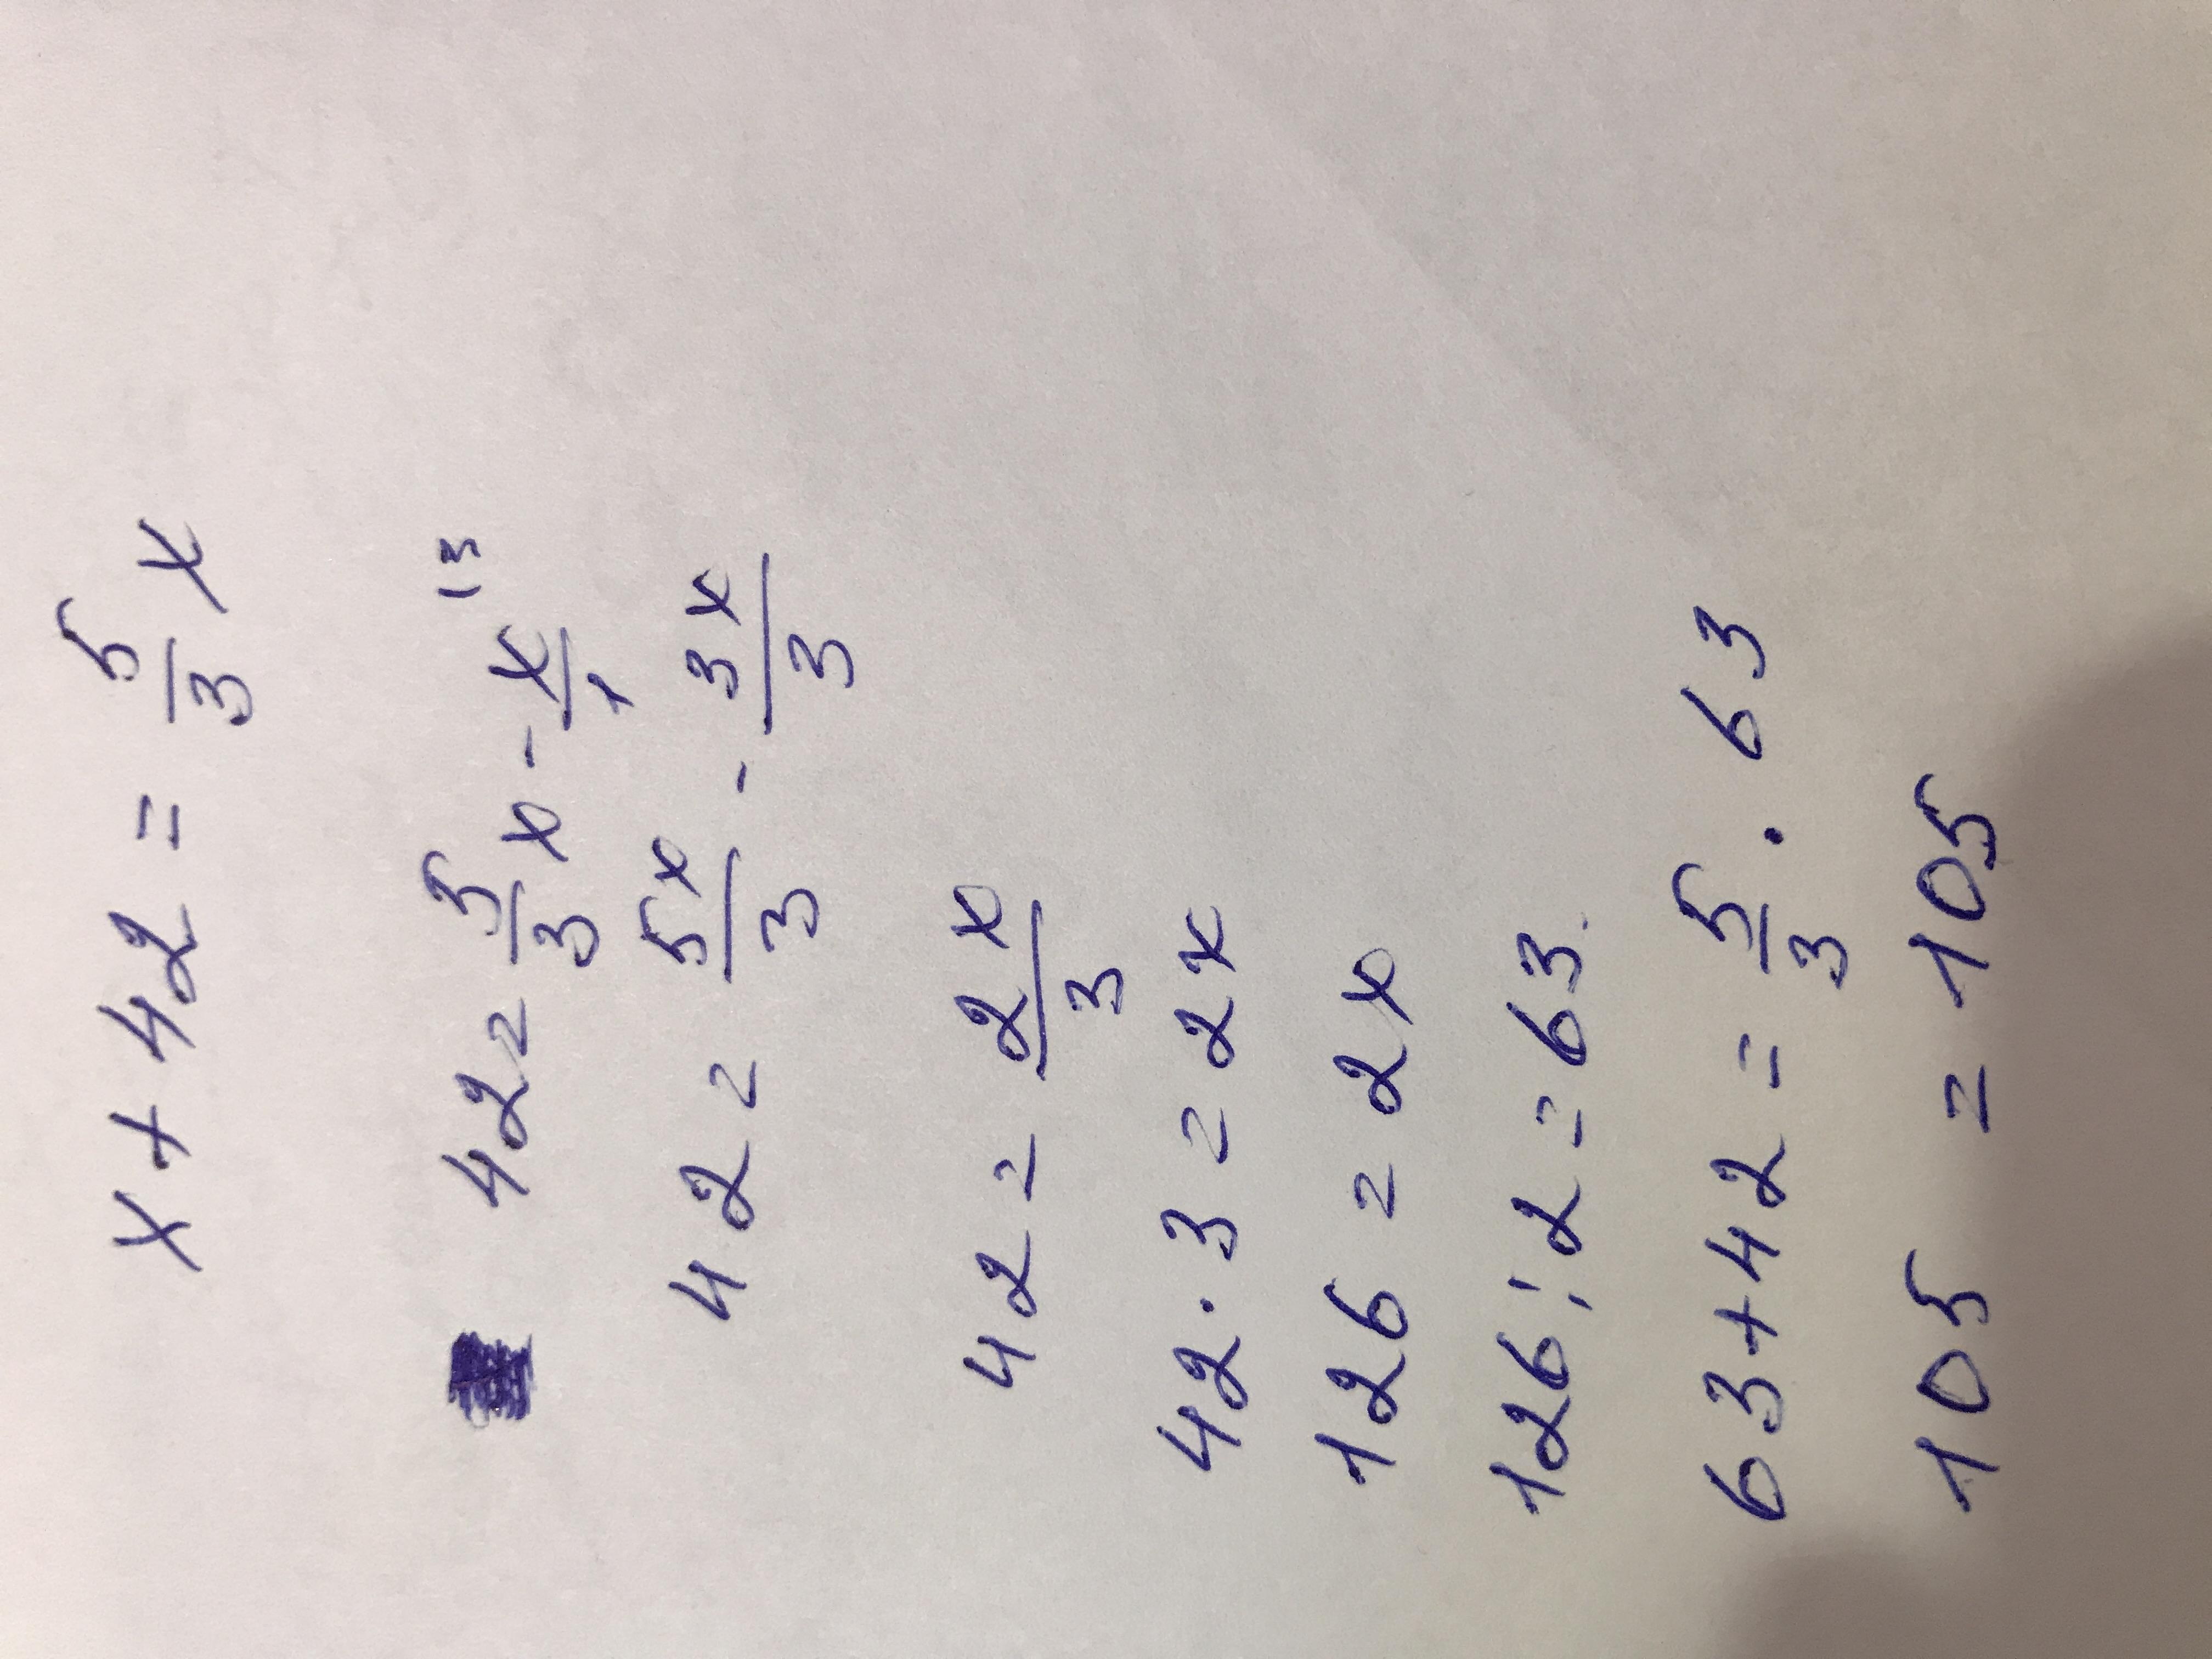 x + 42 = 5/3 x
42 = 5/3 x - x/1 (3
42 = 5x/3 - 3x/3
42 = 2x/3
42 · 3 = 2x
126 = 2x
126 : 2 = 63
63 + 42 = 5/3 · 63
105 = 105